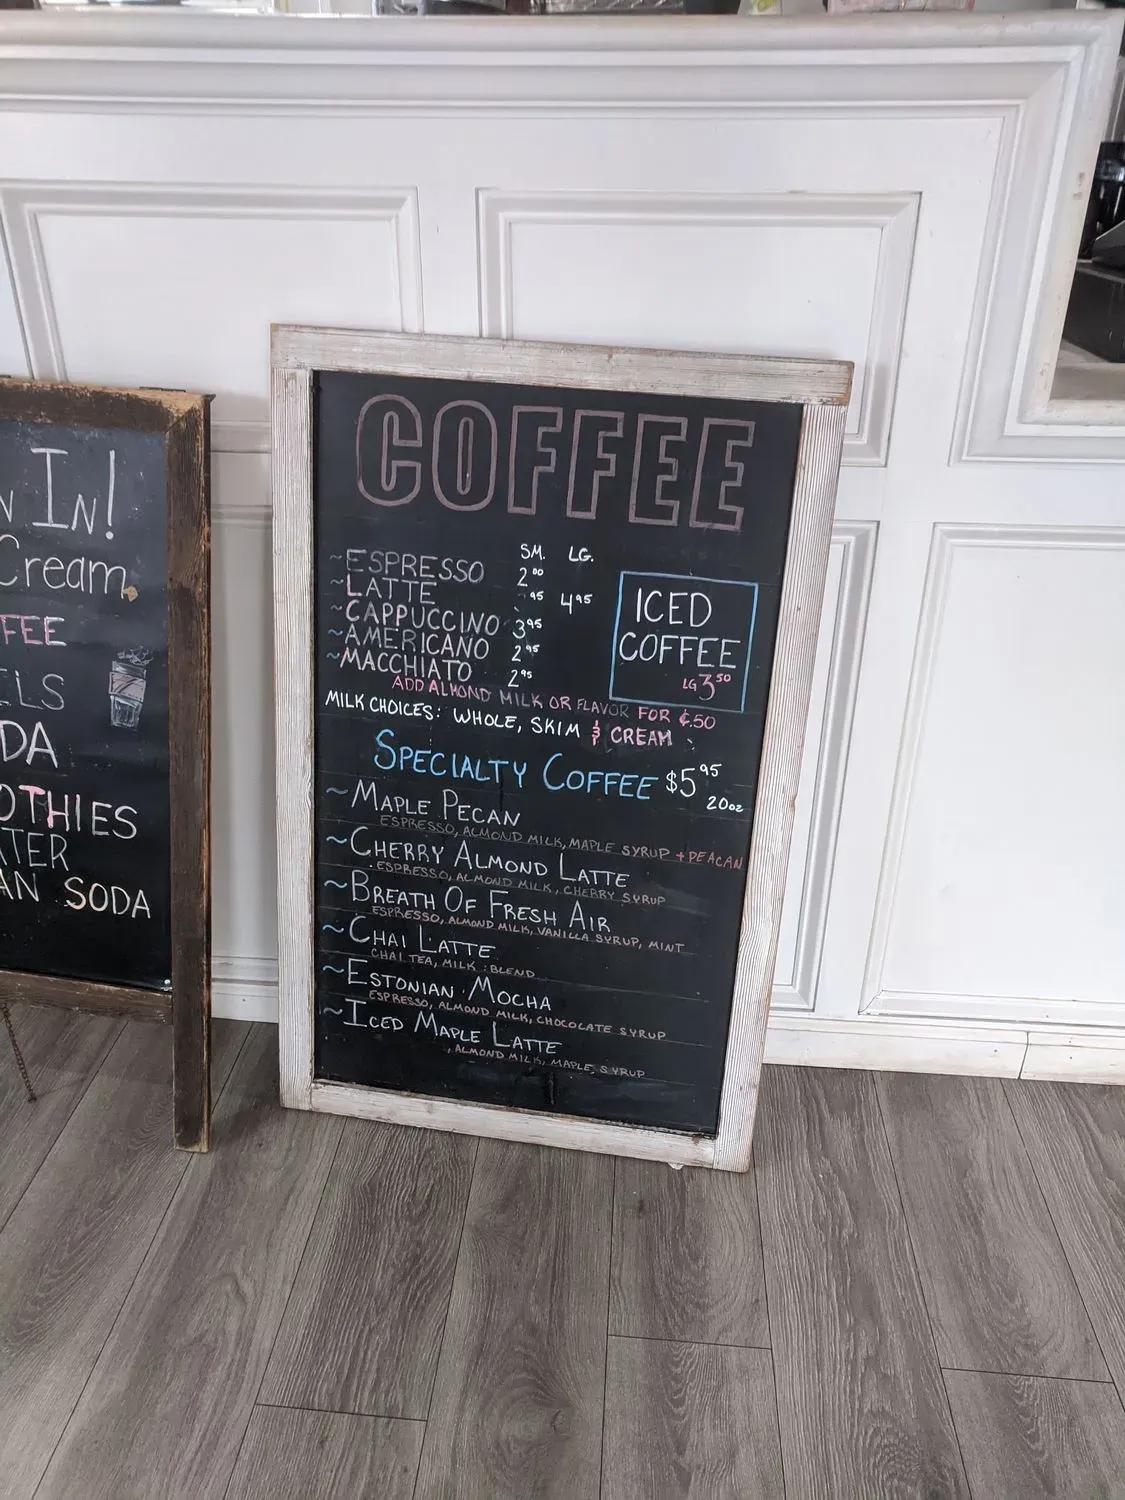 N IN!
Cream
FEE
ELS
DA
OTHIES
TER
AN SODA
COFFEE
SM. LG.
~ESPRESSO 2 00
~LATTE 95 4 95
~CAPPUCCINO 3 95
~AMERICANO 2 95
~MACCHIATO 2 95
ICED
COFFEE
LG 3 50
ADD ALMOND MILK OR FLAVOR FOR ¢.50
MILK CHOICES: WHOLE, SKIM & CREAM
SPECIALTY COFFEE $5 95
20oz
~MAPLE PECAN
ESPRESSO, ALMOND MILK, MAPLE SYRUP + PEACAN
~CHERRY ALMOND LATTE
ESPRESSO, ALMOND MILK, CHERRY SYRUP
~BREATH OF FRESH AIR
ESPRESSO, ALMOND MILK, VANILLA SYRUP, MINT
~CHAI LATTE
CHAI TEA, MILK : BLEND
~ESTONIAN MOCHA
ESPRESSO, ALMOND MILK, CHOCOLATE SYRUP
~ICED MAPLE LATTE
, ALMOND MILK, MAPLE SYRUP